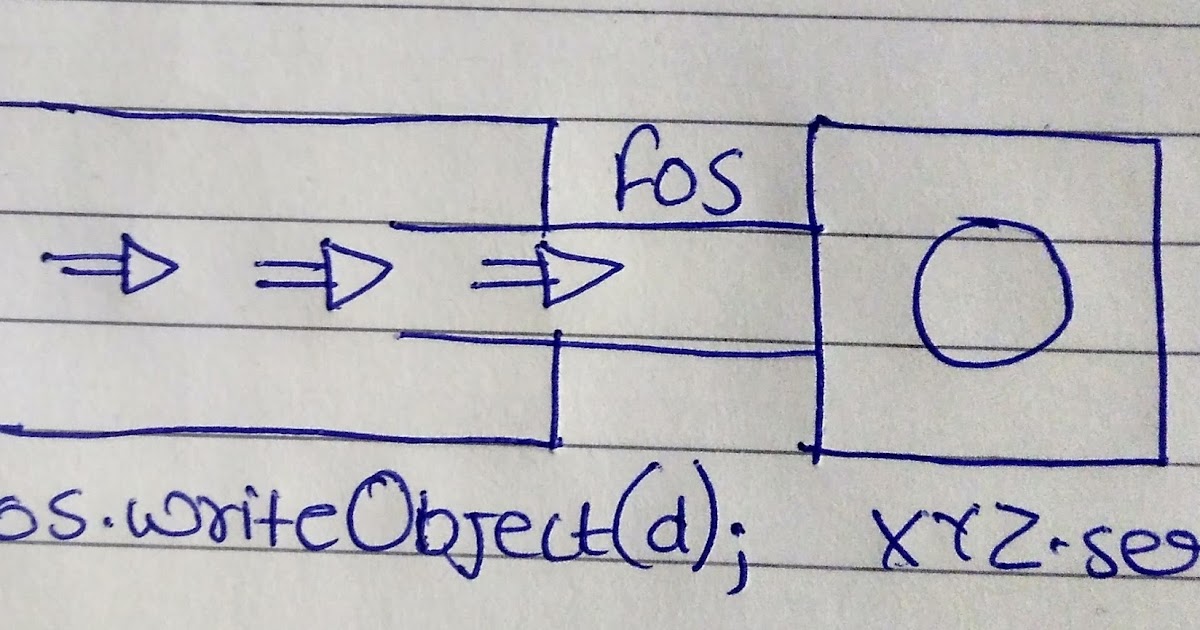 FOS
os.writeObject(d);
XYZ.ser